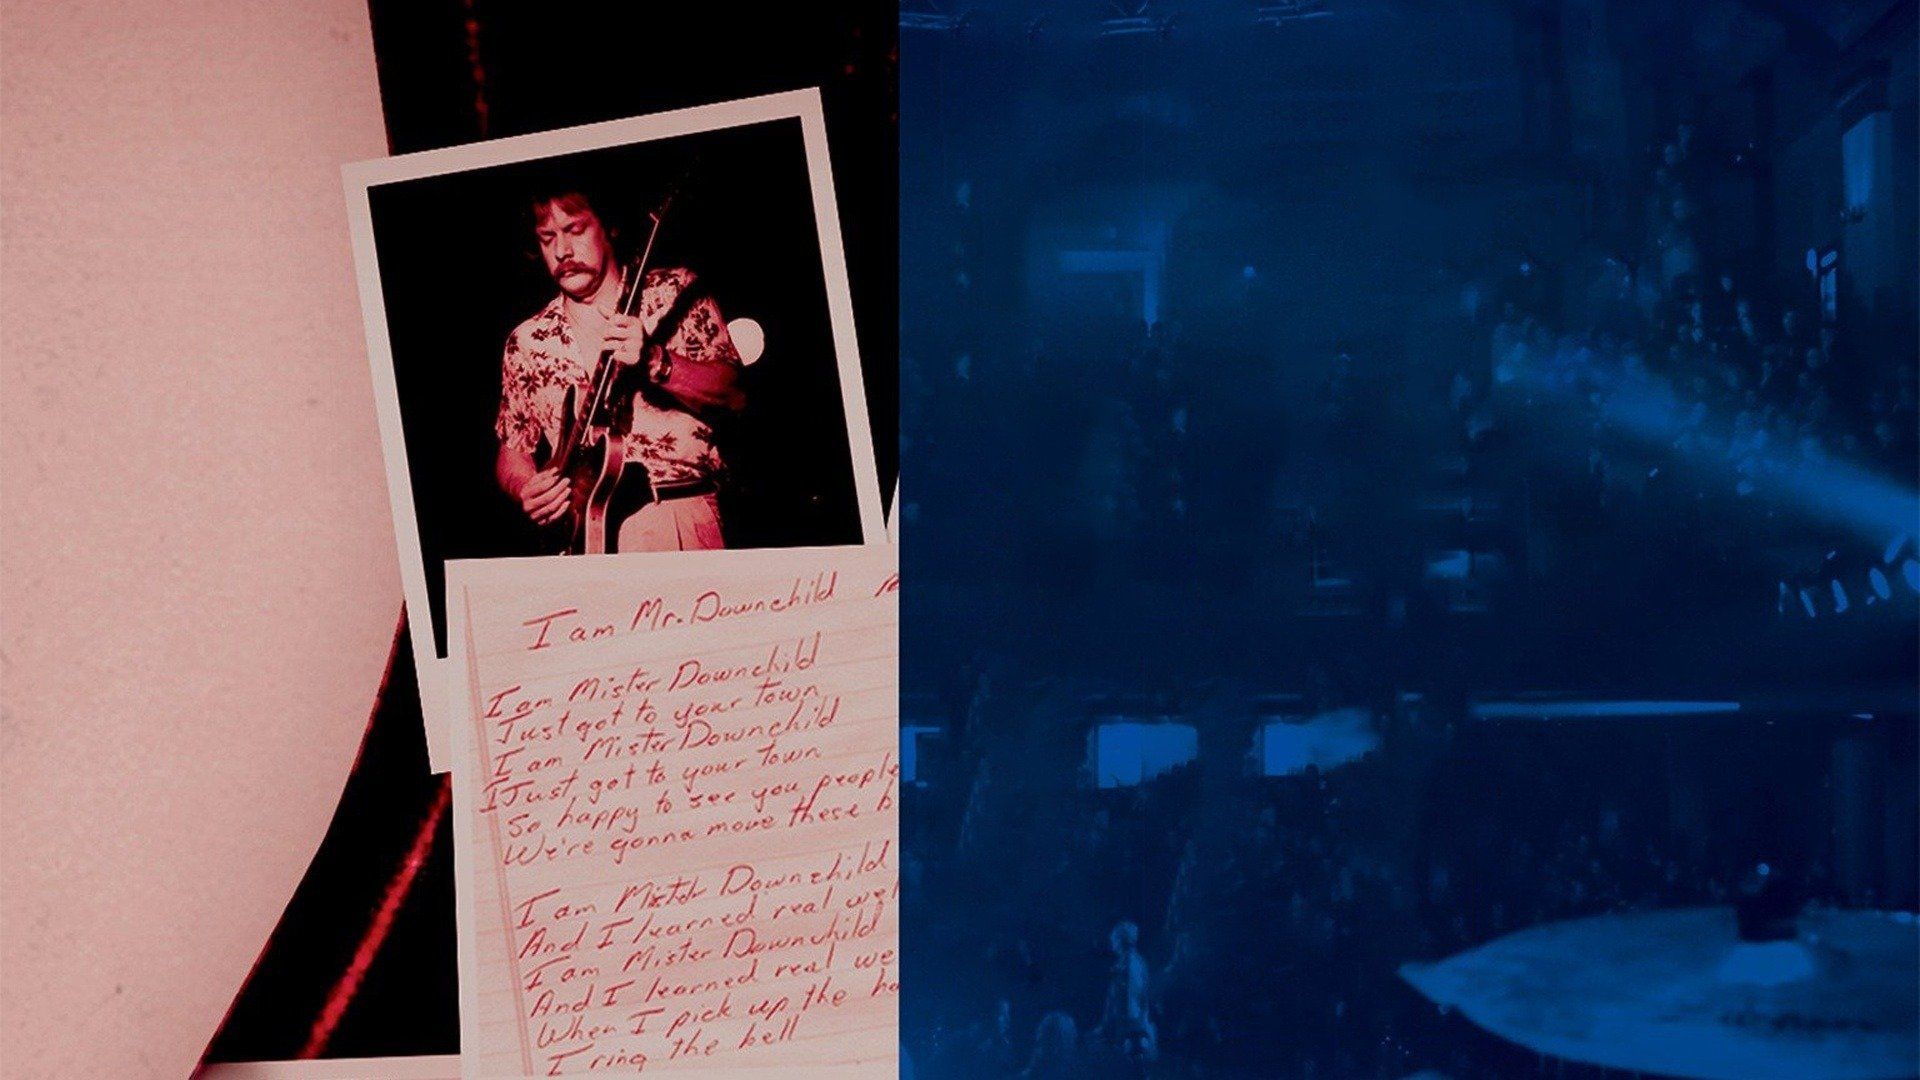 I am Mr. Downchild
I am Mister Downchild
Just got to your town
I am Mister Downchild
Just got to your town
So happy to see you people
We're gonna move these
I am Mister Downchild
And I learned real
I am Mister Downchild
And I learned real
When I pick up the
I ring the bell